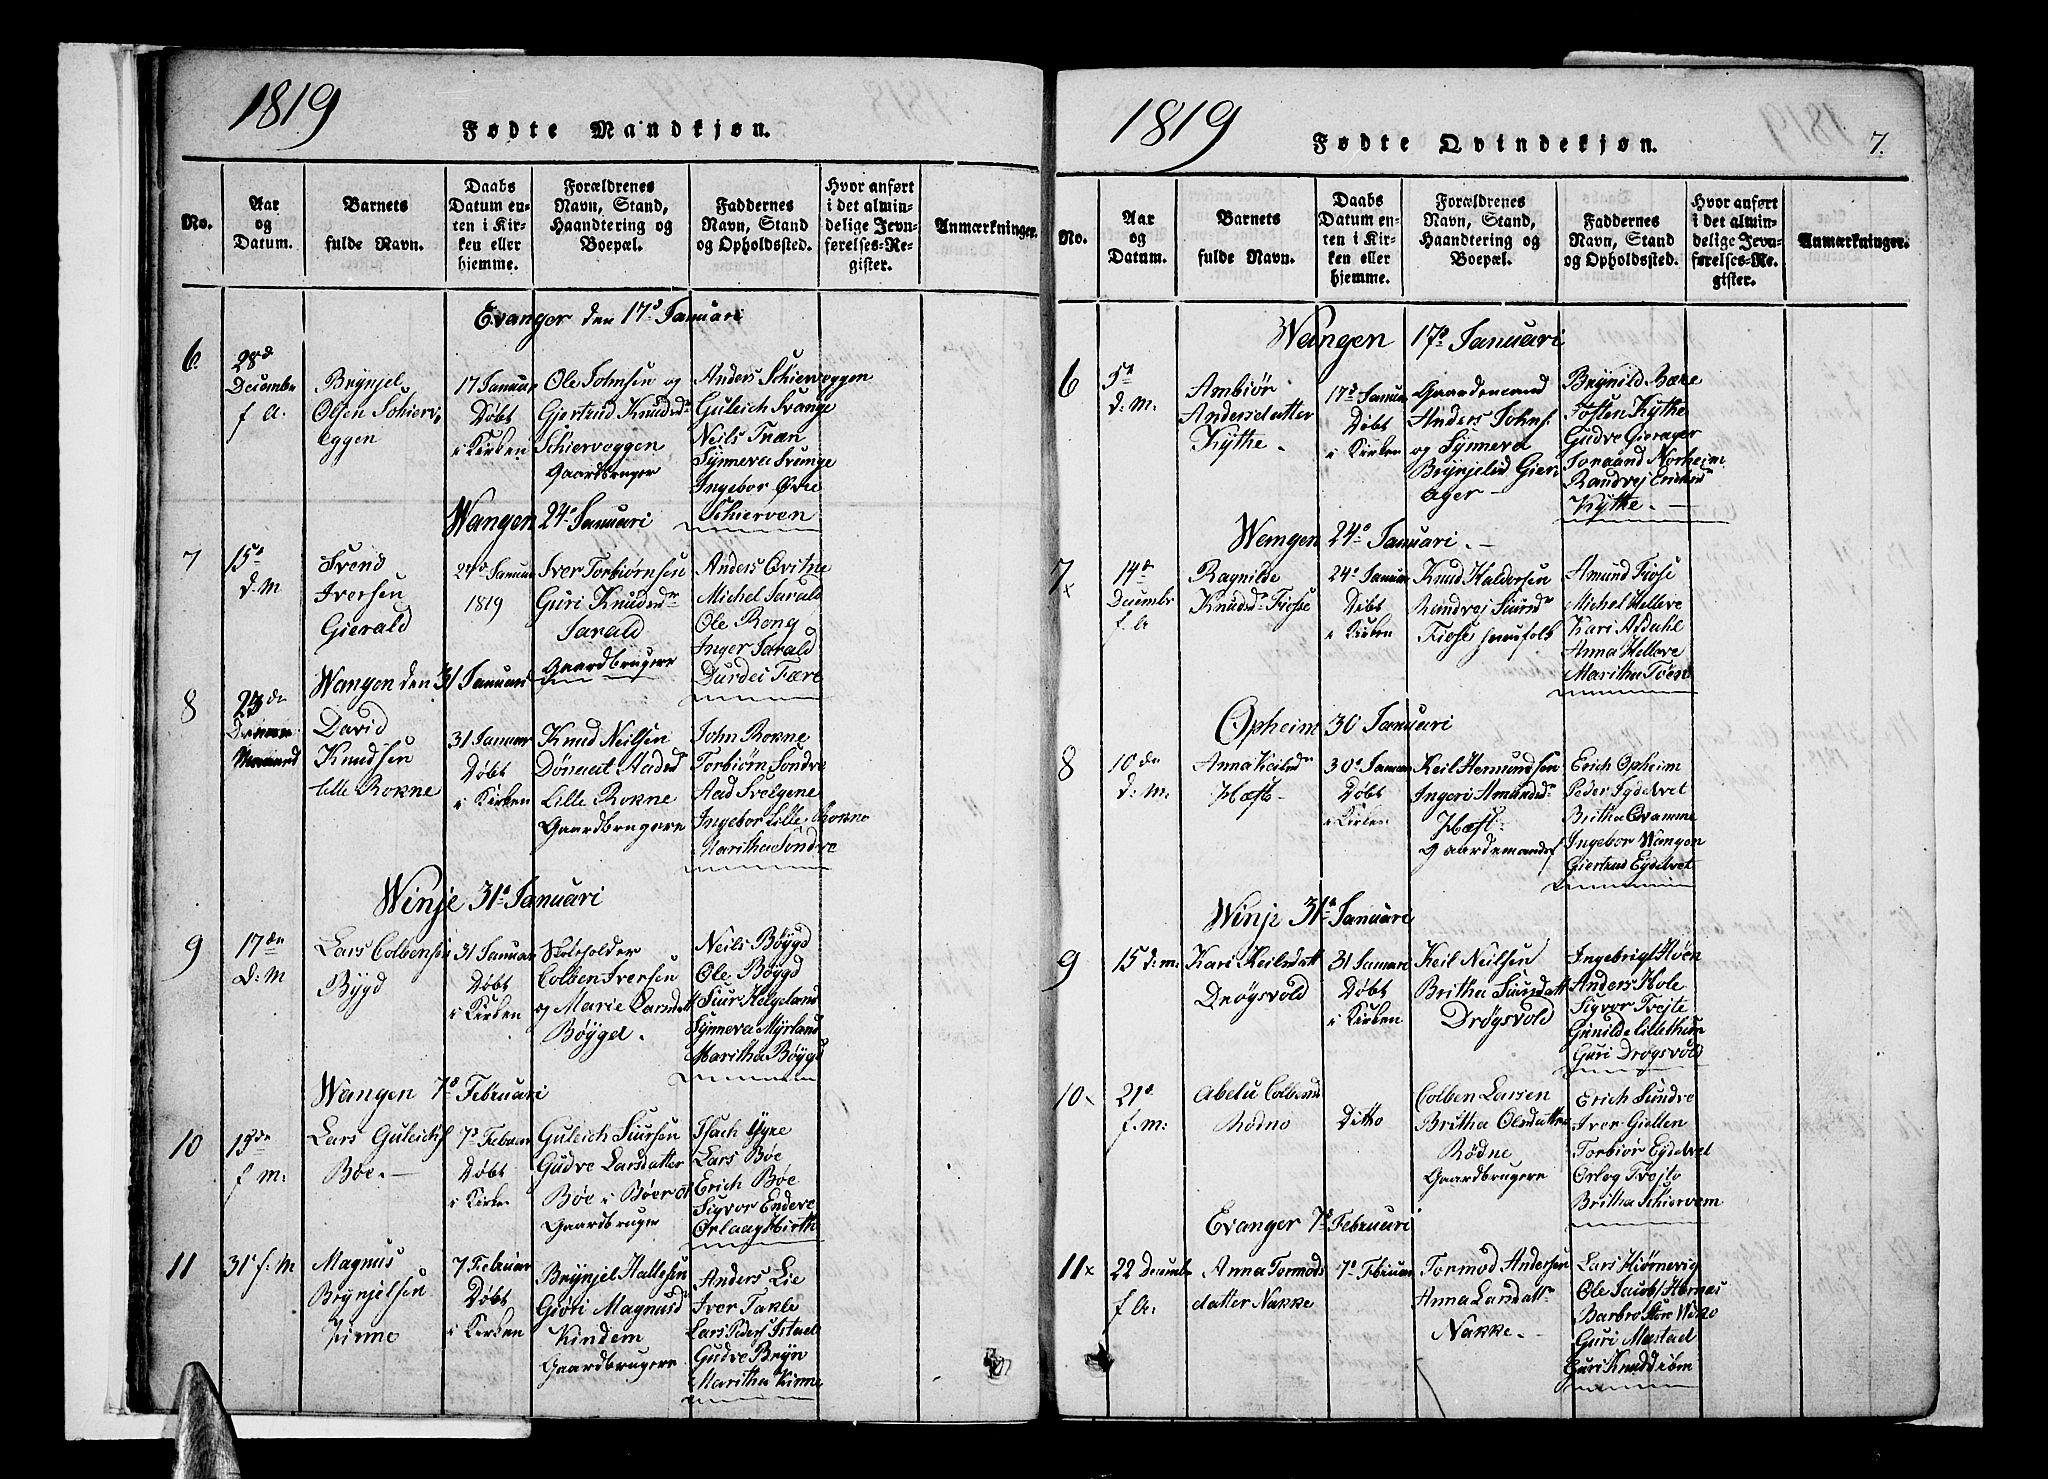 1819
Fødte Mandkjøn.
No.
Aar
og
Datum.
Barnets
fulde Navn.
Daabs
Datum en-
ten i Kir-
ken eller
hjemme.
Forældrenes
Navn, Stand,
Haandtering og
Boepæl.
Faddernes
Navn, Stand
og Opholdssted.
Hvor anført
i det almin-
delige Jevn-
førelses-Re-
gister.
Anmærkninger.
Evanger den 17d Januari
6
28de
Decembr
f A.
Brynjel
Olsen Schierv
eggen
17 Januar
Døbt
i Kirken
Ole Johnsen og
Gjertrud Knudsd
Schierveggen
Gaardbruger
Anders Schierveggen
Guleich Evange
Neils Træn
Synneva Evange
Ingebor Øvre
Schierven
Wangen 24d Januari
7
15d
d. M
Svend
Iversen
Gierald
24d Januar
1819
Iver Torbiørnsen
Guri Knudsdr
Jarald
Gaardbrugere
Anders Qvitne
Michel Jarald
Ole Rong
Inger Jarald
Durdei Fære
Wangen den 31 Januari
8
23de
David
Knudsen
Lille Rokne
31 Januar
Døbt
i Kirken
Knud Neilsen
Lille Rokne
Gaardbrugere
John Rokne
Torbiørn Sondve
Aad Svelgene
Ingebor Lille Rokne
Maritha Sondve
Winje 31d Januari
9
17den
D: M
Lars Colbensen
Bygd
31 Januar
Døbt
i Kirken
Skoleholder
Colben Iversen
og Marie Larsdatt
Bøygd.
Neils Bøygd
Ole Bøygd
Siur Helgeland
Synneva Myrland
Maritha Bøygd
Wangen 7d Februari
10
19de
f m:
Lars Guleichs
Bøe.
7d Februar
Døbt
i Kirke
Guleich Siursen
Gudve Larsdatter
Bøe i Bøer
Gaardbruger
Isach Ygre
Lars Bøe
Erich Bøe
Sigvor Endeve
11
31 f: M
Magnus
Brynjelsen
Kinne
7 Februar
Døbt
i Kirken
Brynjel Hallesen
Giøri Magnusd
Kindem
Gaardbrugere
Anders Lie
Iver Takle
Lars Peders Istad
Gudve Bryn
Maritha Kinne
1819
Fødte Qvindekjøn.
7.
No.
Aar
og
Datum.
Barnets
fulde Navn.
Daabs
Datum en-
ten i Kir-
ken eller
hjemme.
Forældrenes
Navn, Stand,
Haandtering og
Boepæl.
Faddernes
Navn, Stand
og Opholdssted.
Hvor anført
i det almin-
delige Jevn-
førelses-Re-
gister.
Anmærkninger.
Wangen 17d Januari
6
5te
d. M.
Ambiør
Andersdatter
Kythe.
17d Januar
Døbt
i Kirken
Gaardemand
Anders Johns.
og Synneva
Brynjelsd Gier
ager
Brynild Bære
Tosten Kythe
Gudve Gierager
Toraand Norheim
Randvej Erichsd
Kythe.
Wangen 24d Januari.
7x
14de
Decembr
f A
Ragnilde
Knudsd. Fiose
24d Januar
Døbt
i Kirken
Knud Haldorsen
Randvej Siursdr
Fiose huusfolk
Amund Fiose
Michel Helleve
Kari Afdahl
Anna Helleve
Maritha Fiose
Opheim 30 Januari
8
10de
d: M:
Anna Keilsdr
Hæfte
30d Januar
Døbt
i Kirken
Keil Hermundsen
Ingeri Amundsdr
Hæft:
Erich Opheim
Peder Eydelvet
Britha Qvamme
Ingebor Wangen
Giertrud Eydelvet
Winje 31d Januari
9
15 d: m:
Kari Keilsdatt
Drøgsvold
31 Januari
Døbt
i Kirken
Keil Neilsen
Britha Siursdatt
Drøgsvold
Ingebrigt Høn
Anders Hole
Sigvor Tvejte
Gunilde Lillethun
Guri Drøgsvold
10x
21d
f. m:
Abelu Colbensd
Rødne
Ditto
Colben Larsen
Britha Olsdatter
Rødne
Gaardbrugere
Erich Sundve
Iver Giellen
Torbiør Eydelvet
Britha Schiervem
Evanger 7d Februari
11x
22 Decembr
f A:
Anna Tormods
datter Nakke
7d Februar
Tormod Andersen
Anna Larsdattr
Nakke.
Lars Hiørnevig
Ole Jacobs Hornæs
Guri Mestad